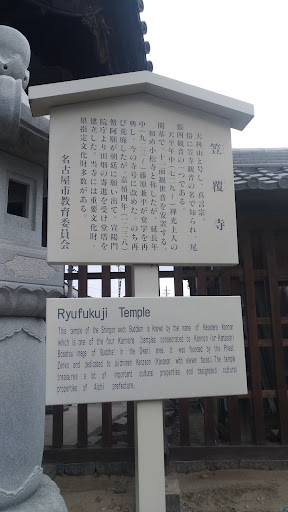 笠覆寺
天林山と号し、真言宗。
俗に笠寺観音の名で知られ、尾
張四観音の一つである。
天平年中、僧禅光上人の
開基で、十一面観世音を安置する。
初め小松寺と称したが、延長年
中、藤原兼平が堂宇を再
興し、今の寺号に改めた。のち再
び荒廃したが、嘉禎四年(一二三八)
僧阿願が朝廷に願い出て、宣陽門
院庁より田畑の寄進を受け堂塔を
建立した。当寺には重要文化財、
県指定文化財多数がある。
名古屋市教育委員会
Ryufukuji Temple
This temple of the Shingon sect Buddism is known by the name of Kasadera Kannon
which is one of the four Kannons (temples consecrated to Kannon (or Kanzeon)
Bosatsu image of Buddha) in the Owari area. It was founded by the Priest
Zenko and dedicated to Juichimen Kanzeon (Kanzeon with eleven faces). The temple
treasures a lot of important cultural properties and designated cultural
properties of Aichi prefecture.